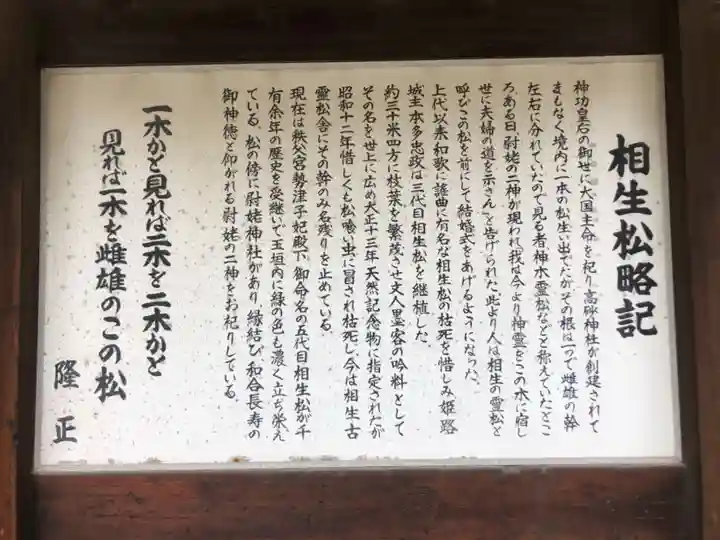 相生松略記
神功皇后の御世に大国主命を祀り高砂神社が創建されて
まもなく境内に一本の松生い出でたがその根は一つで雌雄の幹
左右に分れていたので見る者、神木霊松などと称えていたとこ
ろ、ある日、尉姥の二神が現われ「我は今より神霊をこの木に宿し
世に夫婦の道を示さん」と告げられた。此より人は相生の霊松と
呼びこの松を前にして結婚式をあげるようになった。
上代以来和歌に謡曲に有名な相生松の枯死を惜しみ姫路
城主本多忠政は三代目相生松を継植した。
約三十米四方に枝葉を繁茂させ文人墨客の吟料として
その名を世上に広め大正十三年天然記念物に指定されたが
昭和十二年惜しくも松喰い虫に冒され枯死し、今は相生古
霊松舎にその幹のみ名残りを止めている。
現在は秩父宮勢津子妃殿下御命名の五代目相生松が千
有余年の歴史を受継いで玉垣内に緑の色も濃く立ち栄え
ている。松の傍に尉姥神社があり、縁結び和合長寿の
御神徳と仰がれる尉姥の二神をお祀りしている。
一木かと見れば二木を二木かと
見れば一木を雌雄のこの松
隆正